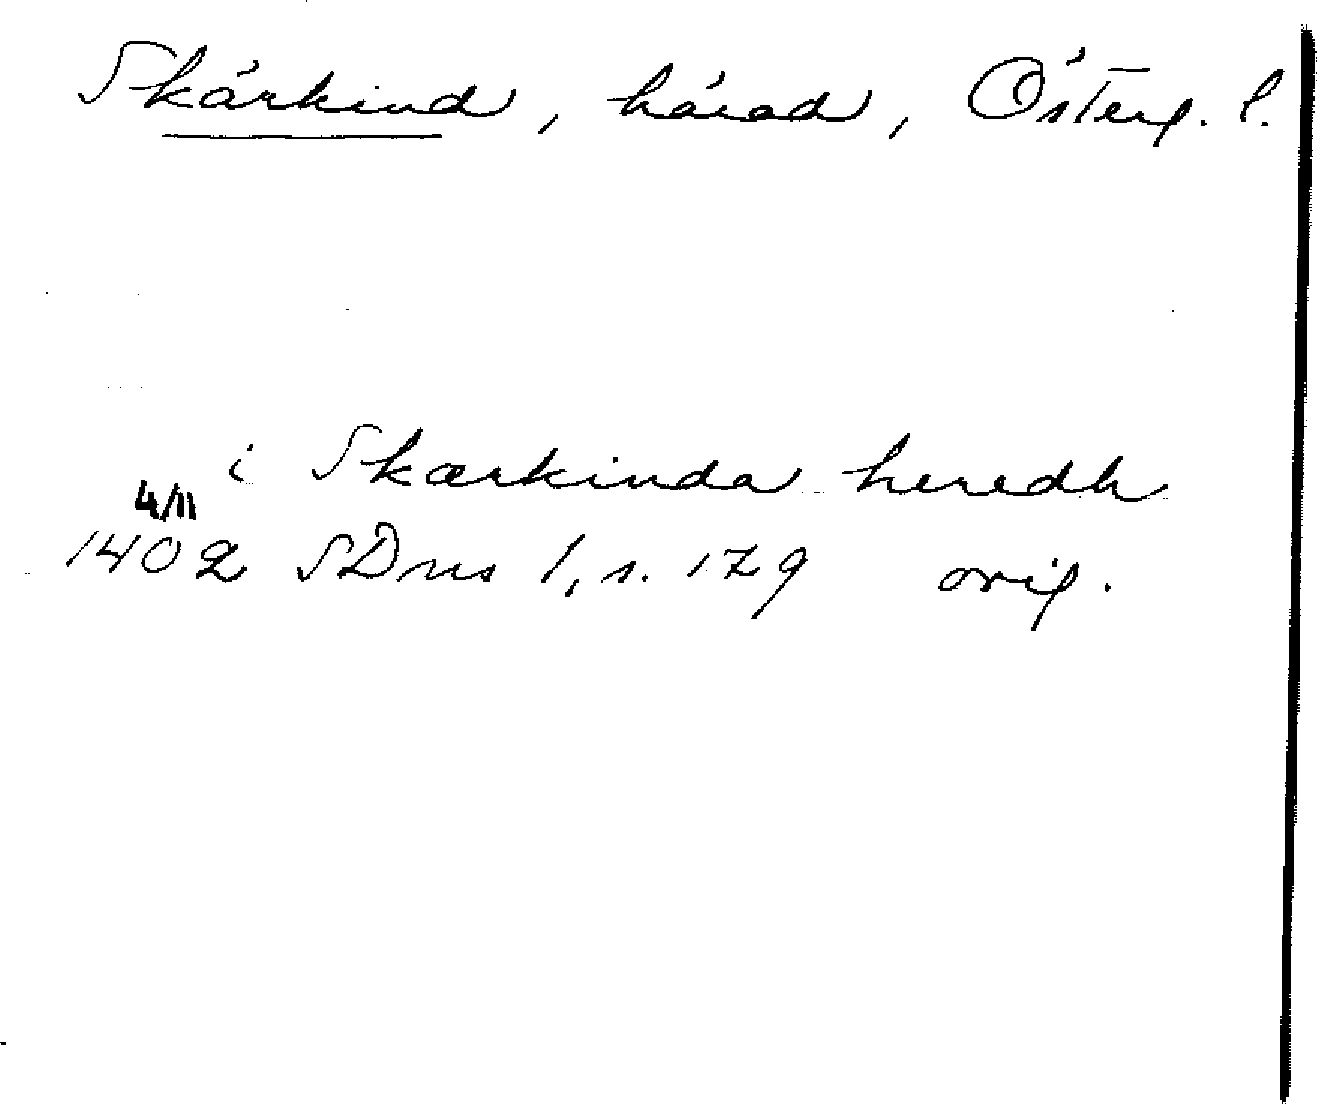 Skärkind, härad, Österg. l.
i Skærkinda heredh
4/11
1402 SDns 1, s. 129 orig.